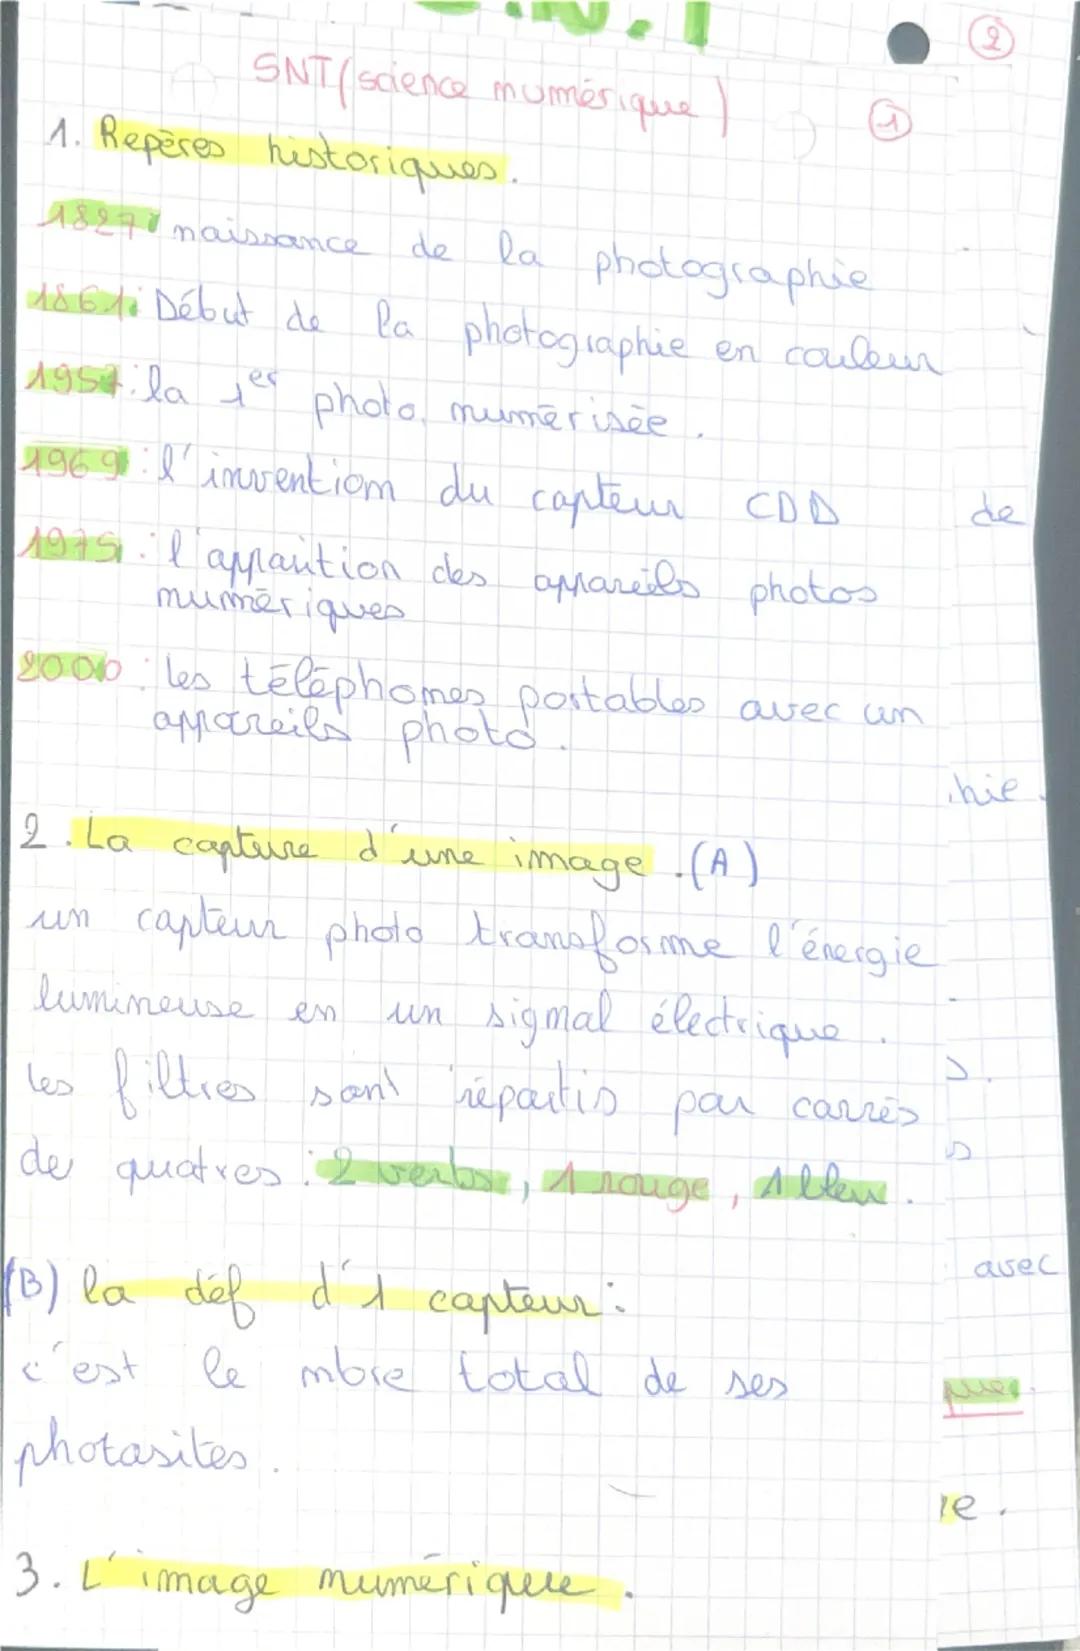 2
SNT (science numérique)
1
1. Repères historiques.
1827 naissance de la photographie
1861: Début de la photographie en couleur
1957: la 1er photo numérisée.
1969: l'invention du capteur CDD
de
1975: l'apparition des appareils photos
numériques
2000: les téléphones portables avec un
appareils photo.
hie.
2. La capture d'une image. (A)
un capteur photo transforme l'énergie
lumineuse en un signal électrique.
les filtres sont répartis par carrés
s.
de quatres: 2 verts, 1 rouge, 1 bleu.
s
(B) la déf d'1 capteur:
avec
c'est le nbre total de ses
que.
photosites.
re.
3. L'image numérique.